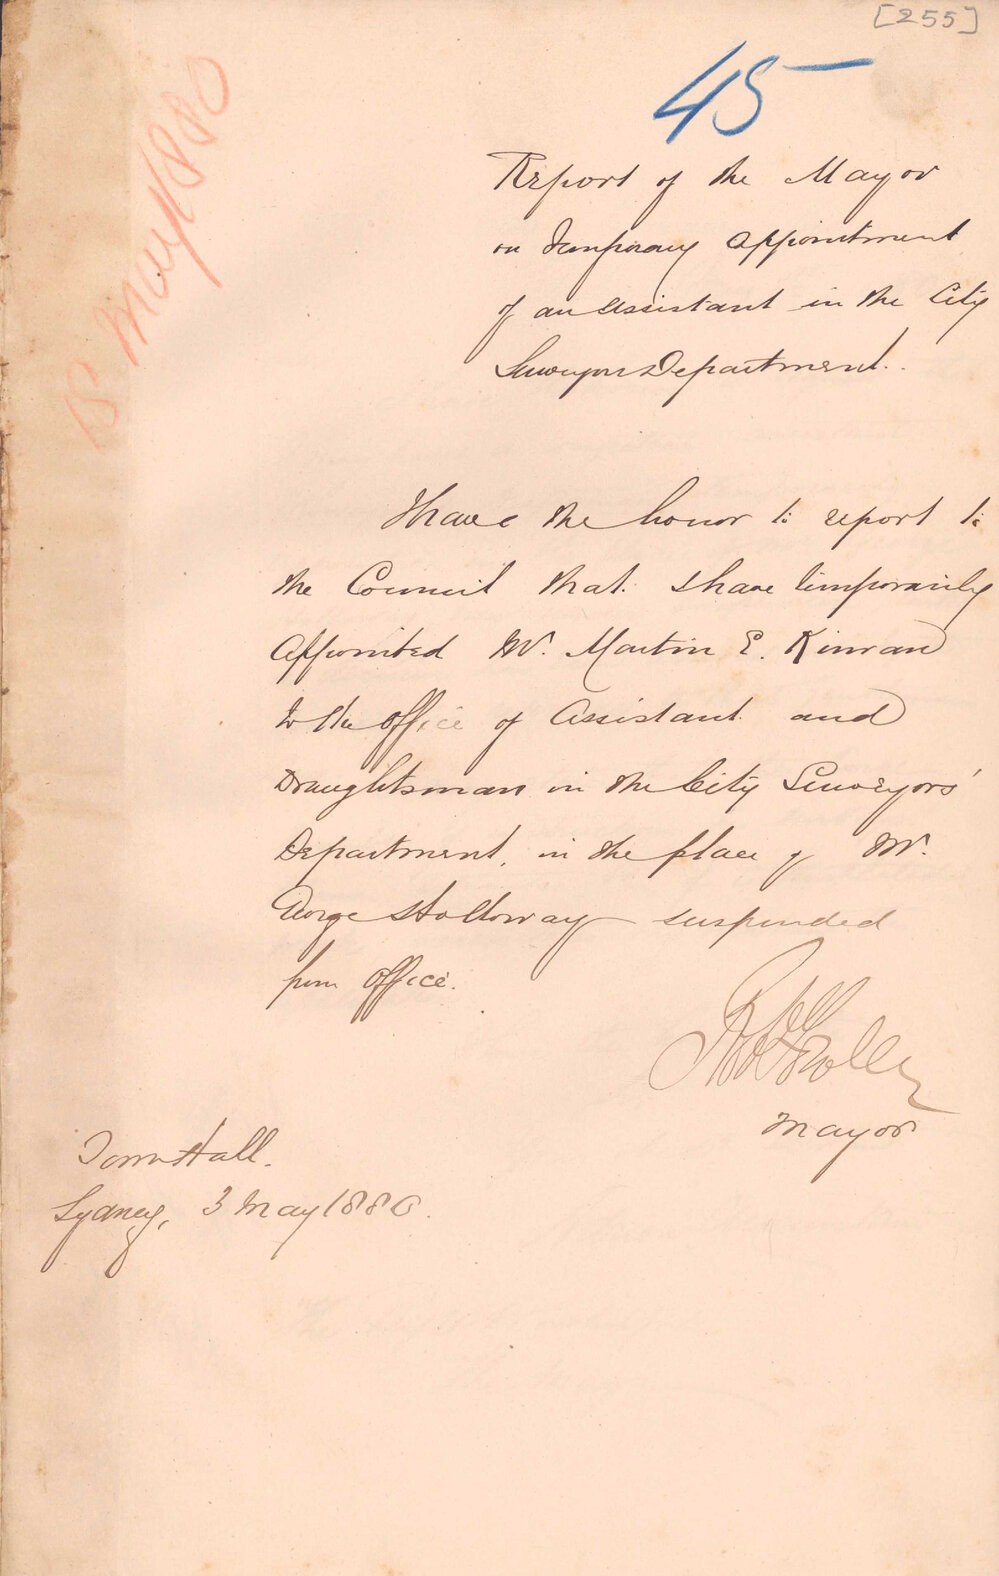 [255]
45
13 May/1880
Report of the Mayor
on Temporary Appointment
of an Assistant in the City
Surveyors Department.
I have the honor to report to
the Council that I have temporarily
Appointed Mr. Martin E. Kinran
to the office of Assistant and
Draughtsman in the City Surveyors'
Department, in the place of Mr.
George Holloway suspended
from Office.
Mayor
Town Hall.
Sydney, 3 May 1880.